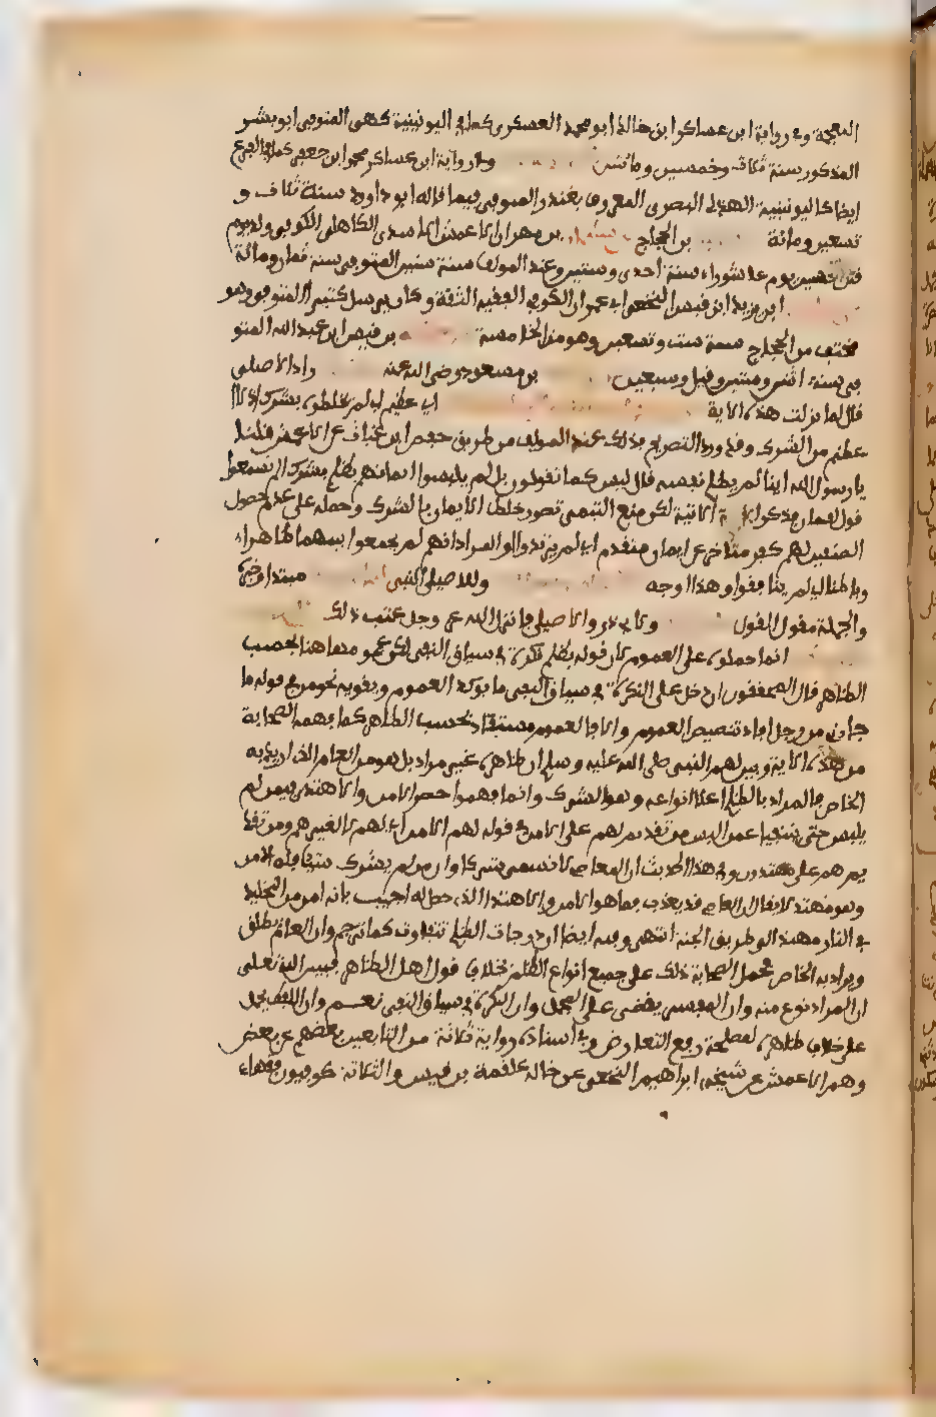 المعجمة وفي رواية ابن عساكر ابن خالد ابو محمد العسكري كما في اليونينية كهي المتوفى ابو بشر
المذكور سنة ثلاث وخمسين ومائتين وفي رواية ابن عساكر محمد ابن جعفر كما في الفرع
ايضا كاليونينية الهذلي البصري المعروف بغندر المتوفى فيما قاله ابو داود سنة ثلاث و
تسعين ومائة بن الحجاج بن مهران الاعمش الاسدي الكاهلي الكوفي ولد يوم
قتل الحسين يوم عاشوراء سنة احدى وستين وعند المولف سنة ستين المتوفى سنة ثمان ومائة
ابن يزيد ابن قيس النخعي ابي عمران الكوفي الفقيه الثقة وكان يرسل كثيرا المتوفى وهو
مختف من الحجاج سنة ست وتسعين وهو من الخامسة بن قيس ابن عبد الله المتو
فى سنة اثنين وستين وقيل وسبعين بن مسعود رضي الله عنه زاد الاصيلي
قال لما نزلت هذه الاية اي عظيم اي لم يخلطوه بشرك اذ لا
عظم من الشرك وقد ورد التصريح بذلك عند المولف من طريق حفص ابن غياث عن الاعمش قلنا
يا رسول الله اينا لم يظلم نفسه قال ليس كما تقولون بل لم يلبسوا ايمانهم بظلم بشرك الم تسمعوا
قول لقمان فذكر الاية لكن منع التيمي تصور خلط الايمان بالشرك وحمله على عدم حصول
الصفتين لهم كفر متاخر عن ايمان متقدم اي لم يرتدوا او المراد انهم لم يجمعوا بينهما ظاهرا
وباطنا اي لم ينافقوا وهذا اوجه وللاصيلي النبي مبتدا وخبر
والجملة مقول القول ولابي ذر والاصيلي فانزل الله عز وجل عقب ذلك
انما حملوه على العموم لان قوله بظلم نكرة في سياق النفي لكن عمومها هنا بحسب
الظاهر قال المحققون ان دخل على النكرة في سياق النفي ما يوكد العموم ويقويه نحو من في قوله ما
جاءني من رجل افاد تنصيص العموم والا فالعموم مستفاد بحسب الظاهر كما فهمه الصحابة
من هذه الاية وبين لهم النبي صلى الله عليه وسلم ان ظاهره غير مراد بل هو من العام الذي اريد به
الخاص فالمراد بالظلم اعلا انواعه وهو الشرك وانما فهموا حصر الامن والاهتداء فيمن لم
يلبس حتى ينتفيا عمن لبس من تقديم لهم على الامن في قوله لهم الامن اي لهم لا لغيرهم ومن تقد
يم هم على مهتدون وفي هذا الحديث ان المعاصي لا تسمى شركا وان من لم يشرك شيئا فله الامن
وهو مهتد لا يقال ان العاصي قد يعذب فما هو الامن والاهتداء الذي حصل له اجيب بانه امن من التخليد
في النار مهتد الى طريق الجنة انتهى وفيه ايضا ان درجات الظلم تتفاوت كما ترجم وان العام يطلق
ويراد به الخاص فحمل الصحابة ذلك على جميع انواع الظلم فبين الله تعلى
ان المراد نوع منه وان المفسر يقضي على المجمل وان النكرة في سياق النفي تعم وان اللفظ يحمل
على خلاف ظاهره لمصلحة دفع التعارض وفي اسناده رواية ثلاثة من التابعين بعضهم عن بعض
وهم الاعمش عن شيخه ابراهيم النخعي عن خاله علقمة بن قيس والثلاثة كوفيون فقهاء